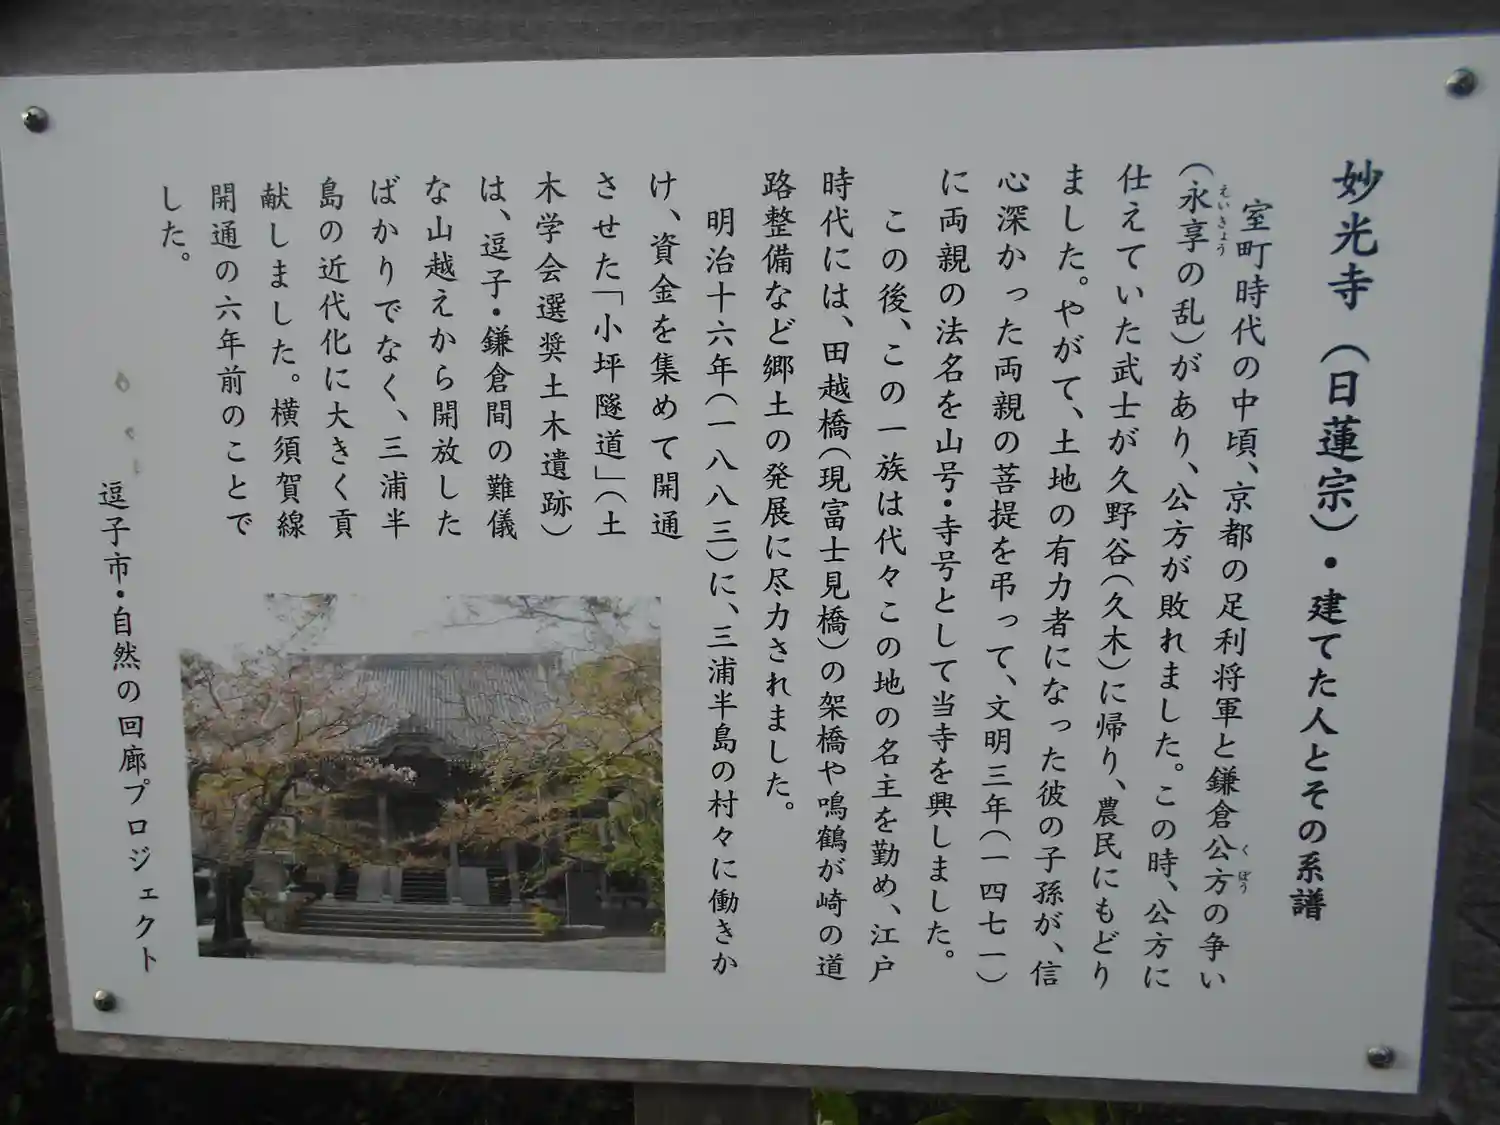 妙光寺（日蓮宗）・建てた人とその系譜
室町時代の中頃、京都の足利将軍と鎌倉公方の争い
くぼう
（永享の乱）があり、公方が敗れました。この時、公方に
えいきょう
仕えていた武士が久野谷（久木）に帰り、農民にもどり
ました。やがて、土地の有力者になった彼の子孫が、信
心深かった両親の菩提を弔って、文明三年（一四七一）
に両親の法名を山号・寺号として当寺を興しました。
この後、この一族は代々この地の名主を勤め、江戸
時代には、田越橋（現富士見橋）の架橋や鳴鶴が崎の道
路整備など郷土の発展に尽力されました。
明治十六年（一八八三）に、三浦半島の村々に働きか
け、資金を集めて開通
させた「小坪隧道」（土
木学会選奨土木遺跡）
は、逗子・鎌倉間の難儀
な山越えから開放した
ばかりでなく、三浦半
島の近代化に大きく貢
献しました。横須賀線
開通の六年前のことで
した。
逗子市・自然の回廊プロジェクト